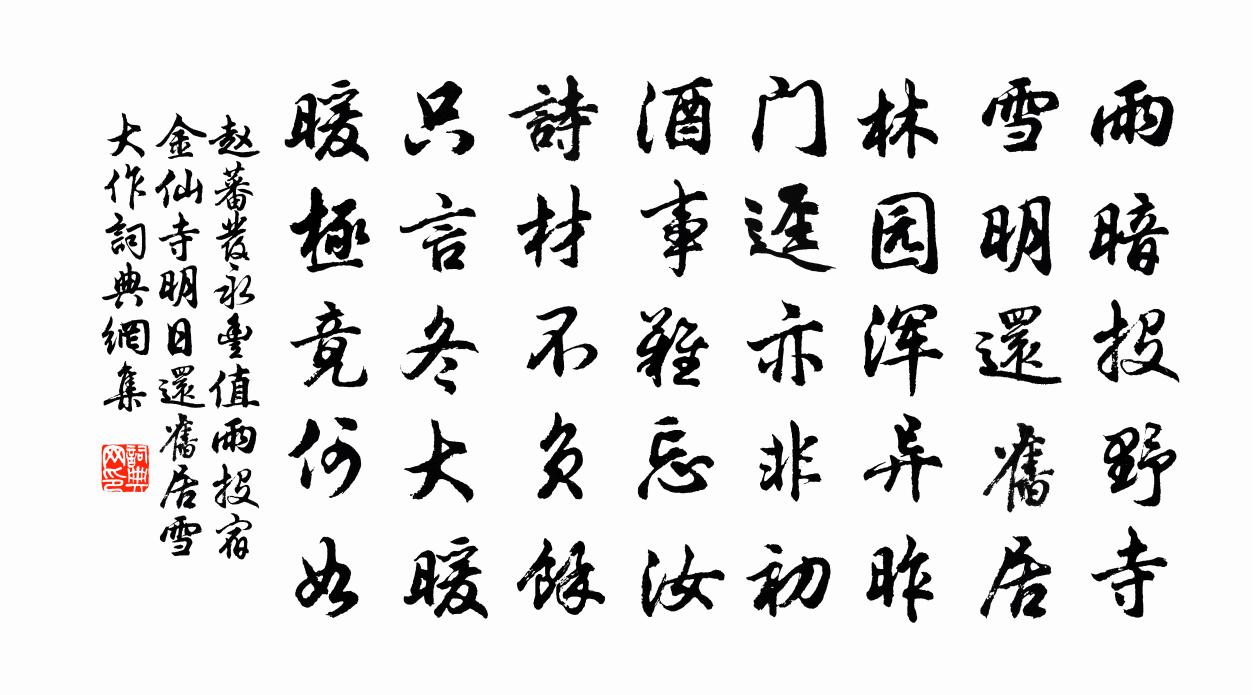 雨暗投野寺
雪明還舊居
林园浑异昨
门迳亦非初
酒事難忘汝
詩材不负餘
只言冬大暖
暖極竟何如
赵蕃發永豊值雨投宿
金仙寺明日還舊居雪
大作詞典網集
詞典
网印